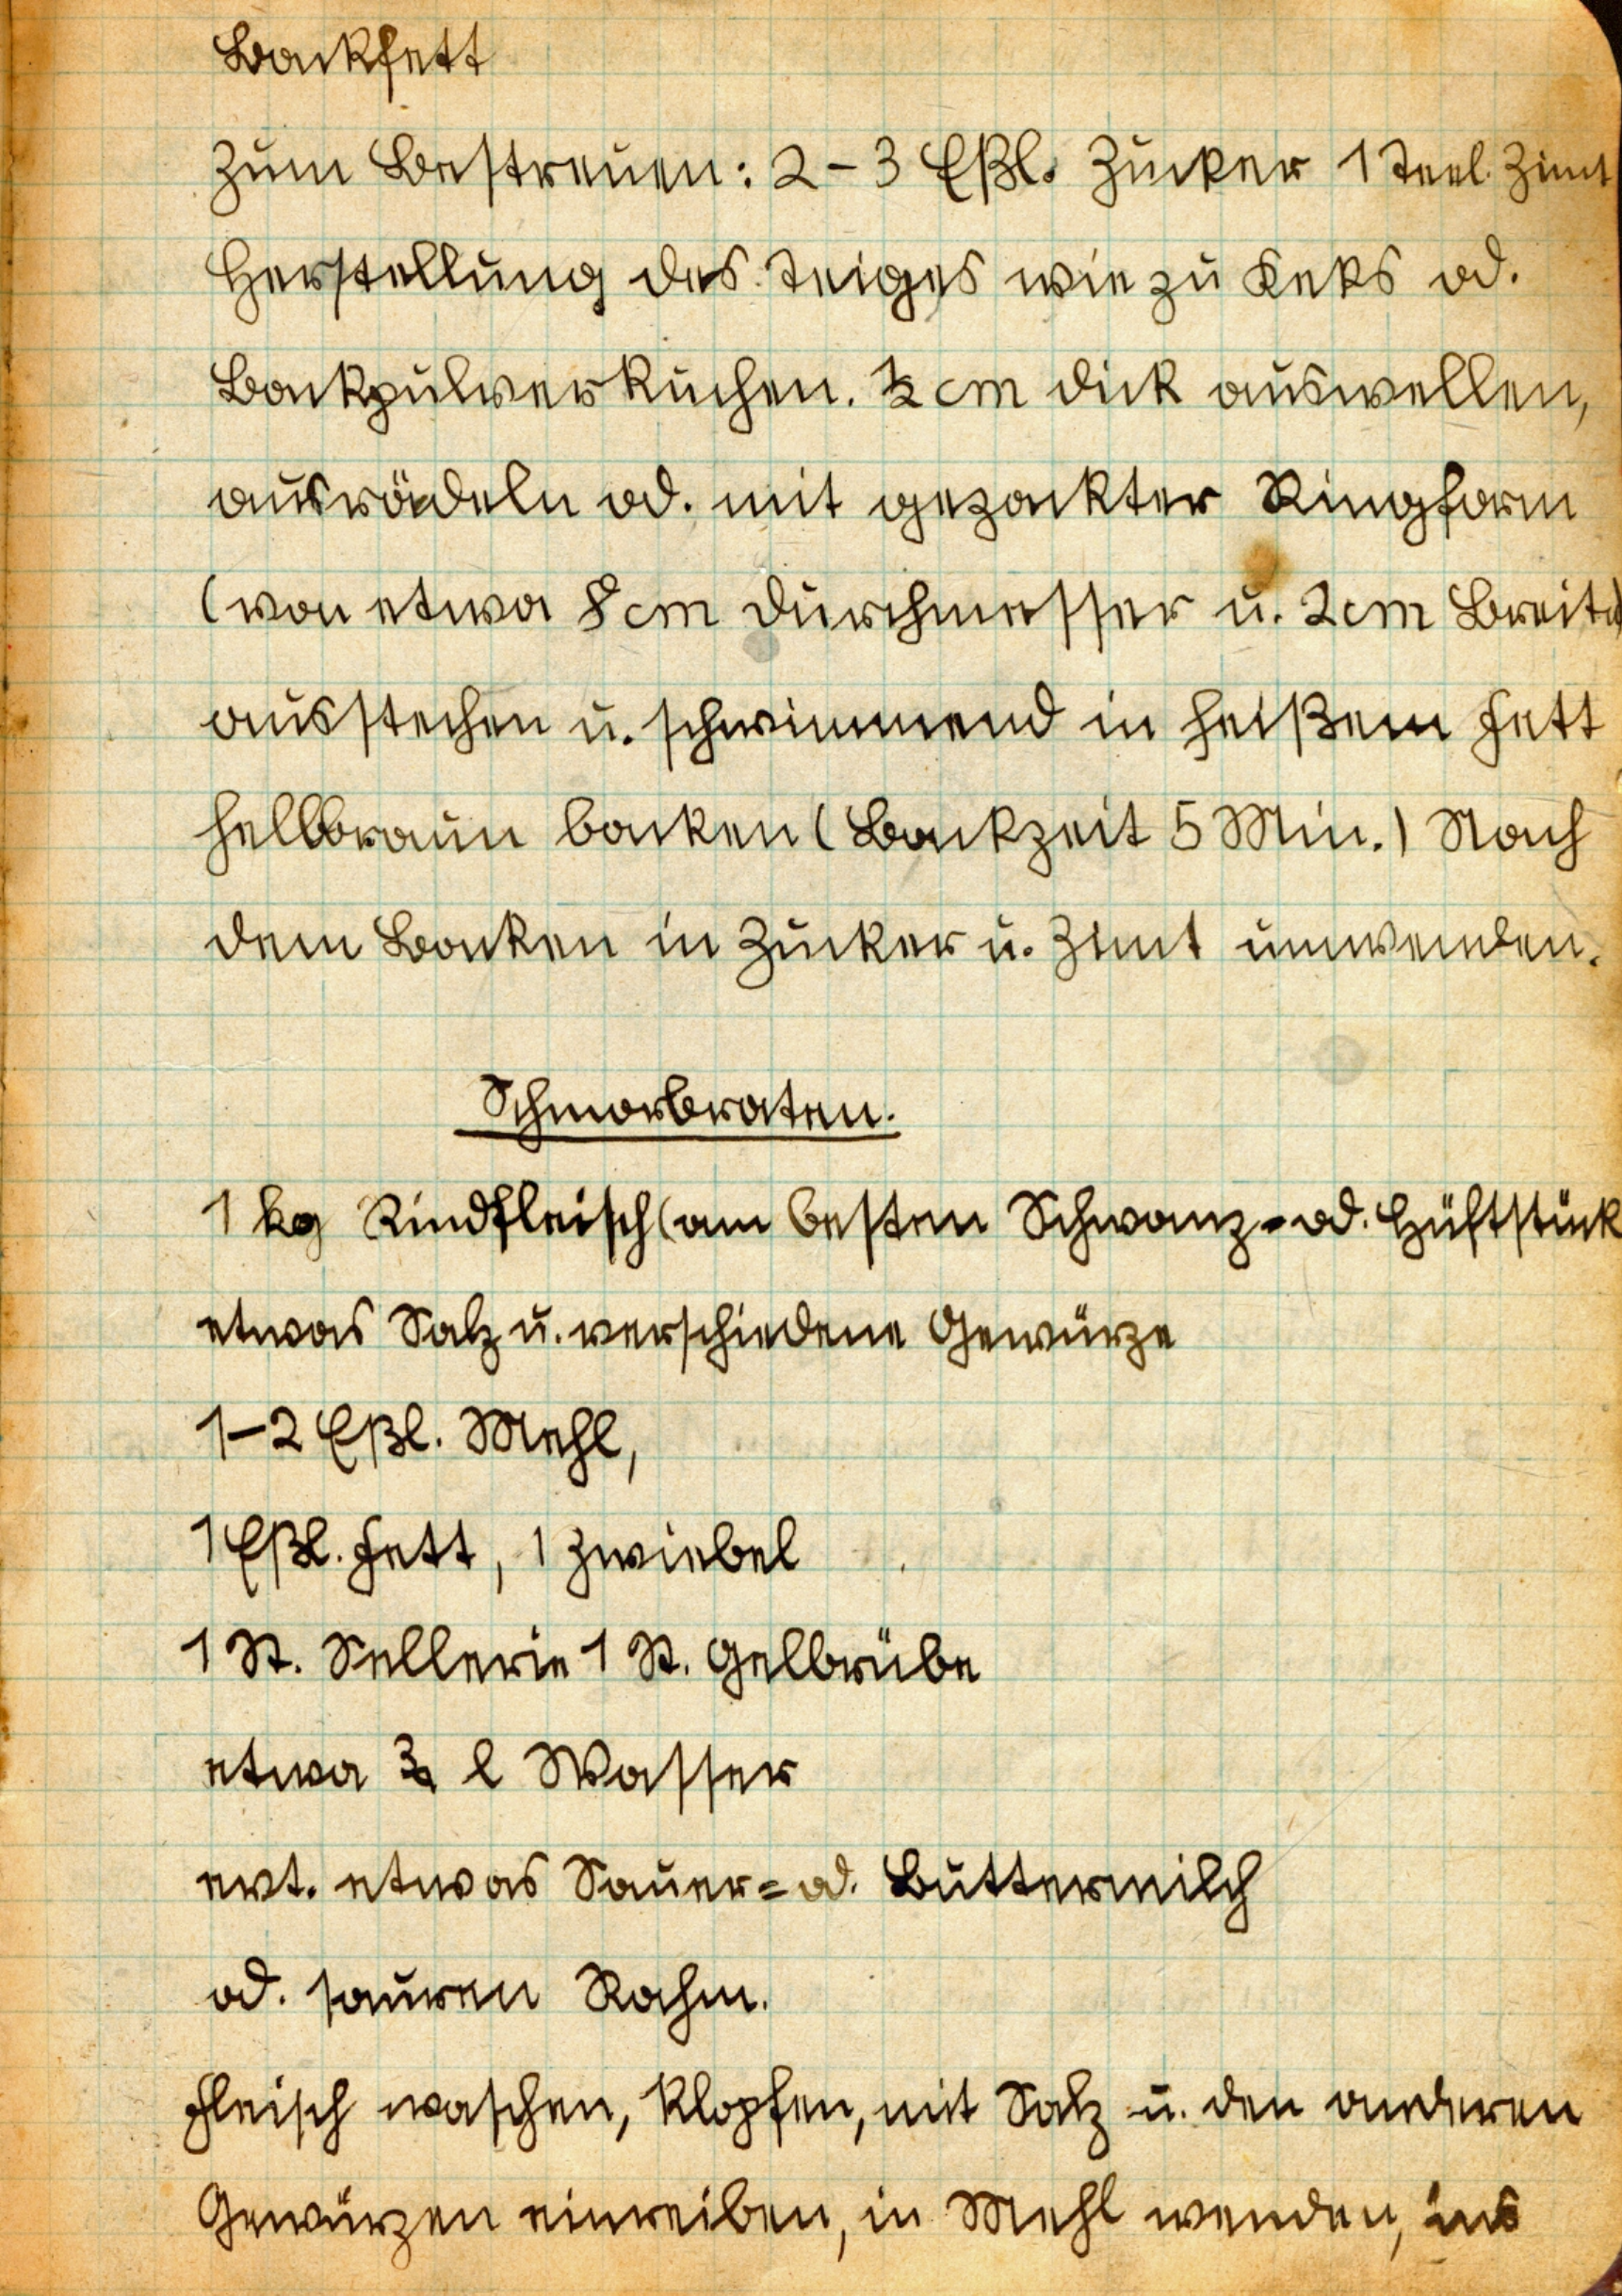 Backfett
Zum Bestreuen: 2-3 Eßl. Zucker 1 Teel. Zimt
Herstellung des Teiges wie zu Keks od.
Backpulverkuchen. ½ cm dick auswellen,
ausrädeln od. mit gezackter Ringform
(von etwa 8 cm Durchmesser u. 2 cm Breite)
ausstechen u. schwimmend in heißem Fett
hellbraun backen (Backzeit 5 Min.) Nach
dem Backen in Zucker u. Zimt umwenden.
Schmorbraten.
1 kg Rindfleisch (am besten Schwanz- od. Hüftstück
etwas Salz u. verschiedene Gewürze
1-2 Eßl. Mehl,
1 Eßl. Fett, 1 Zwiebel
1 St. Sellerie 1 St. Gelbrübe
etwa ¾ l Wasser
evt. etwas Sauer= od. Buttermilch
od. sauren Rahm.
Fleisch waschen, klopfen, mit Salz u. den anderen
Gewürzen einreiben, in Mehl wenden, ins